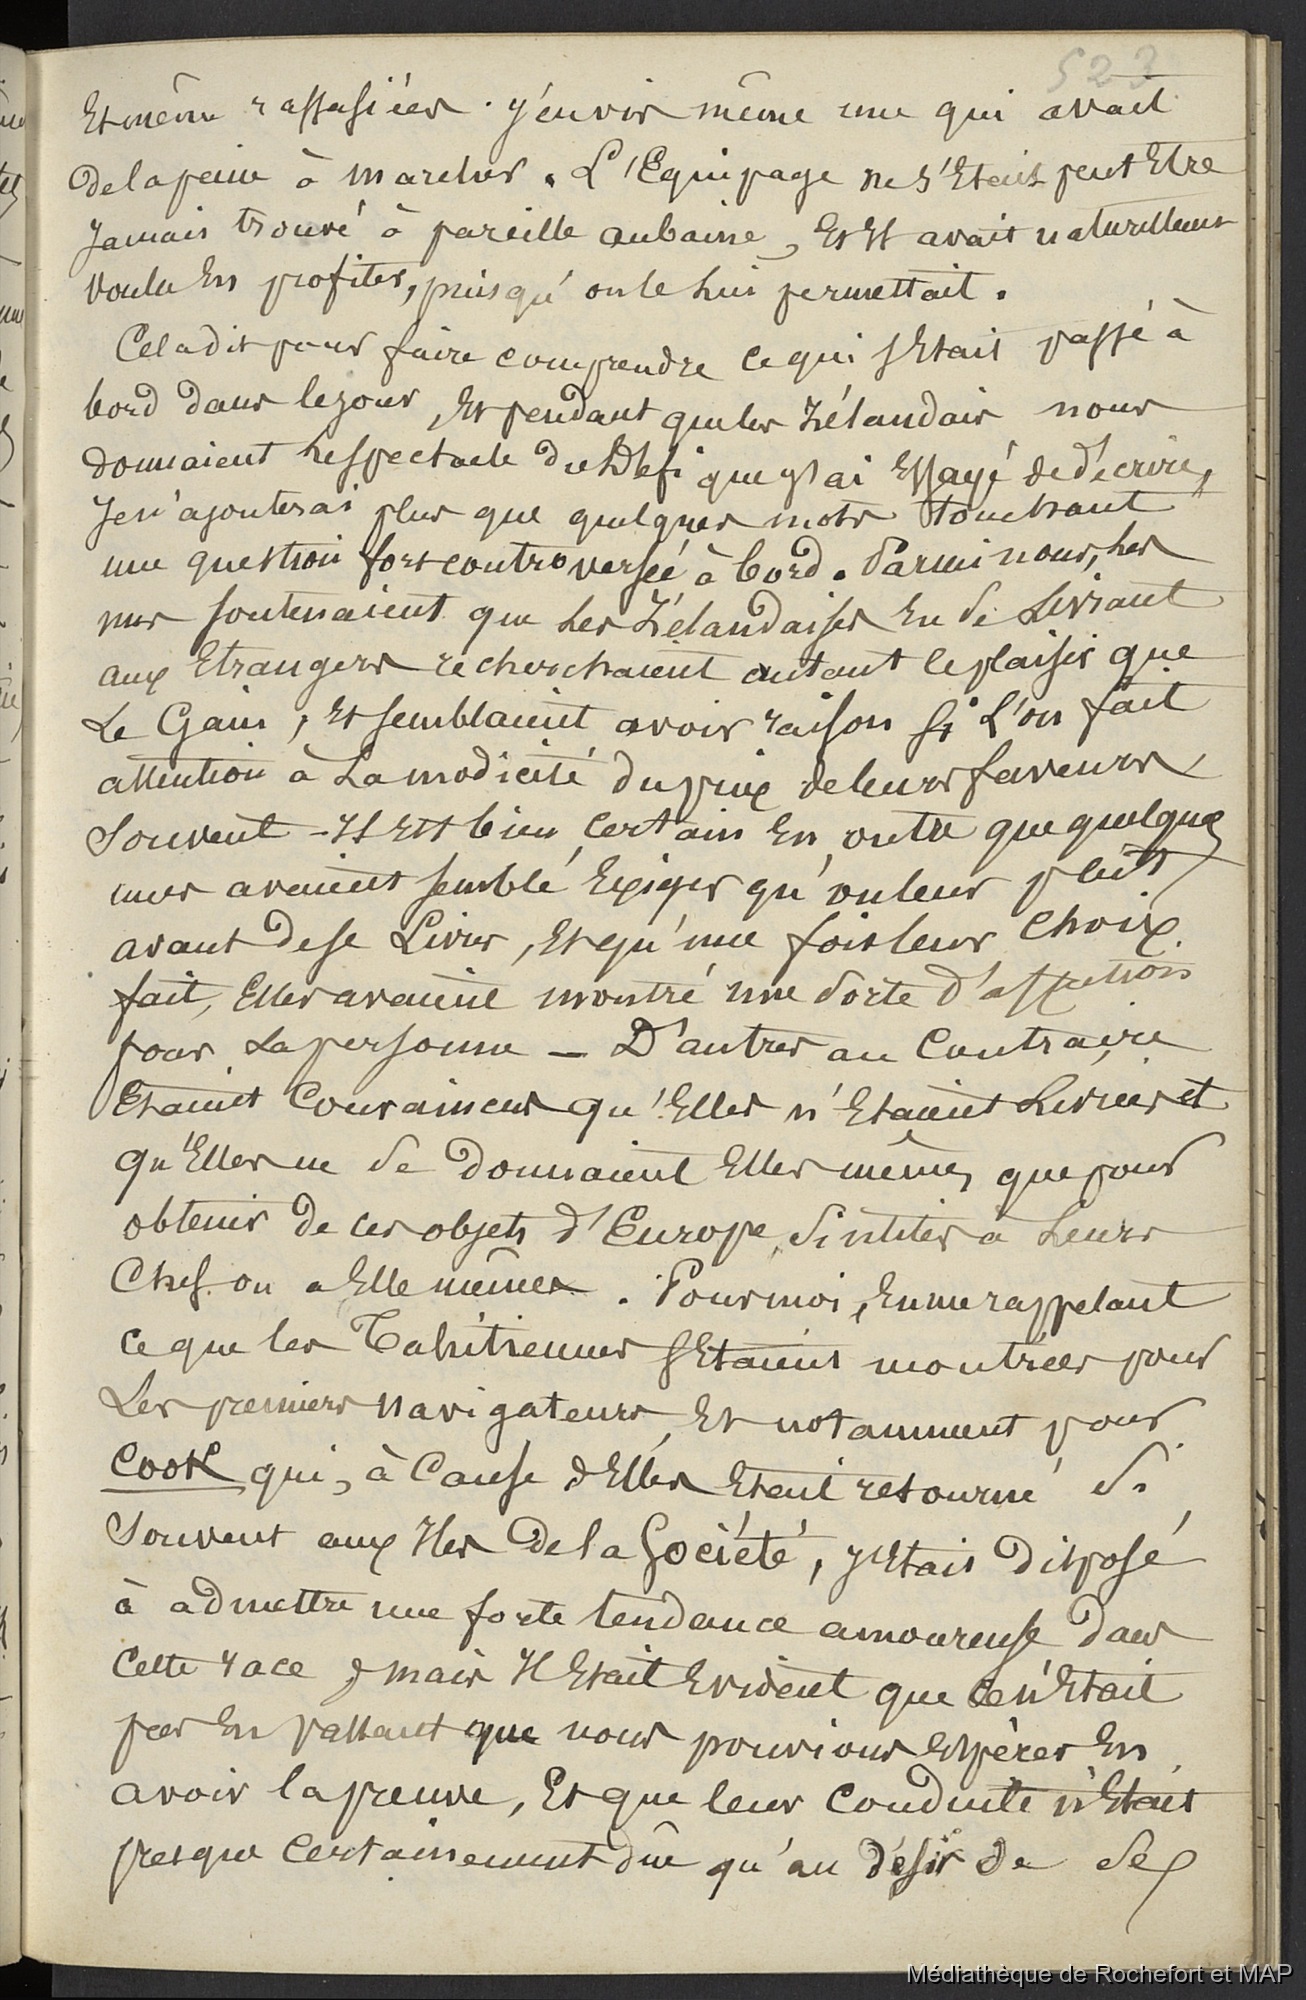 523
Et même rassasiées. j'en vis même une qui avait
de la peine à marcher. L'Equipage ne s'Etait peut Etre
jamais trouvé à pareille aubaine, Et Il avait naturellement
voulu En profiter, puisqu'on le lui permettait.
Cela dit pour faire comprendre ce qui s'Etait passé à
bord dans le jour, Et pendant que les Zélandais nous
donnaient le spectacle du défi que j'ai Essayé de décrire,
Je n'ajouterai plus que quelques mots touchant
une question fort controversée à bord. Parmi nous, les
uns soutenaient que les Zélandaises En se Livrant
aux Etrangers recherchaient autant le plaisir que
Le Gain, Et semblaient avoir raison si L'on fait
attention à La modicité du prix de leurs faveurs
Souvent - Il Est bien certain En outre que quelques
unes avaient semblé Exiger qu'on leur plut
avant de se Livrer, Et qu'une fois leur choix
fait, Elles avaient montré une sorte d'affection
pour La personne — D'autres au Contraire
Etaient Convaincus qu'Elles n'Etaient Livrées et
qu'Elles ne se donnaient Elles mêmes que pour
obtenir de ces objets d'Europe, si utiles à Leurs
Chef ou a Elle mêmes. Pour moi, En me rappelant
ce que les Tahitiennes s'Etaient montrées pour
Les premiers navigateurs, Et notamment pour
Cook qui, à Cause d'Elles Etait retourné si
souvent aux Iles de la Société, j'Etais disposé
à admettre une forte tendance amoureuse dans
Cette race, mais Il Etait Evident que ce n'Etait
pas En passant que nous pouvions Espérer En
avoir la preuve, Et que leur Conduite n'Etait
presque certainement dûe qu'au désir de se
Médiathèque de Rochefort et MAP